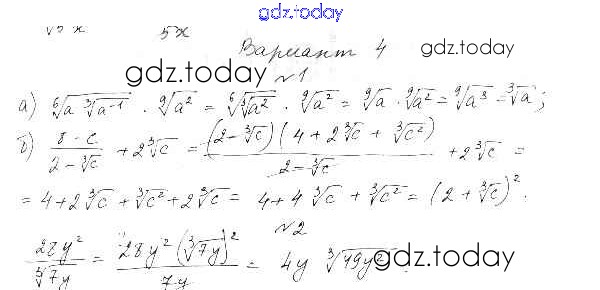 gdz.today
5x
Вариант 4 gdz.today
gdz.today
№1
а) ⁶√(a ∛(a⁻¹)) · ⁹√(a²) = ⁶√(∛(a²)) · ⁹√(a²) = ⁹√a · ⁹√(a²) = ⁹√(a³) = ∛a;
б) (8 - c)/(2 - ∛c) + 2∛c = (2 - ∛c)(4 + 2∛c + ∛(c²))/(2 - ∛c) + 2∛c =
= 4 + 2∛c + ∛(c²) + 2∛c = 4 + 4∛c + ∛(c²) = (2 + ∛c)².
№2
28y²/∛(7y) = 28y²(∛(7y))²/(7y) = 4y ∛(49y²)
gdz.today